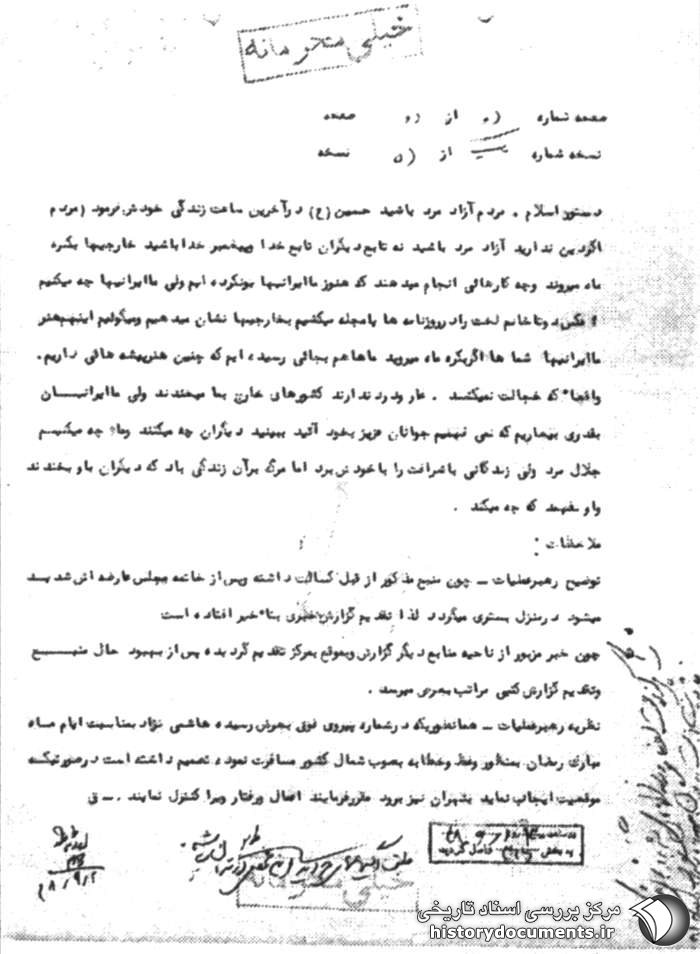 خیلی محرمانه
صفحه شماره از صفحه
نسخه شماره از نسخه
دستور اسلام . مردم آزاد مرد باشید حسین (ع) در آخرین ساعت زندگی خودش فرمود (مردم
اگر دین ندارید آزاد مرد باشید نه تابع دیگران تابع خدا و پیغمبر خدا باشید خارجیها بکره
ماه میروند و چه کارهائی انجام میدهند که هنوز ما ایرانیها بو نکرده ایم ولی ما ایرانیها چه میکنیم
عکس دو تا خانم لخت را در روزنامه ها یا مجله میکشیم بخارجیها نشان میدهیم و میگوئیم اینهم هنر
ما ایرانیها شما ها اگر بکره ماه میروید ماها هم بجائی رسیده ایم که چنین هنرپیشه هائی داریم .
واقعا" که خجالت نمیکشند . عار و درد ندارند کشورهای خارج بما میخندند ولی ما ایرانیان
بقدری بیماریم که نمی فهمیم جوانان عزیز بخود آئید ببینید دیگران چه میکنند و ما چه میکنیم
جلال مرد ولی زندگانی با شرافت را با خودش برد اما مرگ بر آن زندگی باد که دیگران باو بخندند
و او نفهمد که چه میکند .
ملاحظات :
توضیح رهبر عملیات ـ چون منبع مذکور از قبل کسالت داشته و پس از خاتمه مجلس عارضه اش شدید
میشود در منزل بستری میگردد لذا تقدیم گزارش خبری بتا"خیر افتاده است
چون خبر مزبور از ناحیه منابع دیگر گزارش و بموقع بمرکز تقدیم گردیده پس از بهبود حال منبع
و تقدیم گزارش کتبی مراتب بعرض میرسد .
نظریه رهبر عملیات ـ همانطوریکه در شماره پیروی فوق بعرض رسیده هاشمی نژاد بمناسبت ایام ماه
مبارک رمضان بمنظور وعظ و خطابه بصوب شمال کشور مسافرت نموده تصمیم داشته است در صورتیکه
موقعیت ایجاب نماید بتهران نیز برود مقرر فرمایند اعمال و رفتار ویرا کنترل نمایند . ـ ق
به بخش واصل گردید
۴۸/۹/۲
خیلی محرمانه
مرکز بررسی اسناد تاریخی
historydocuments.ir